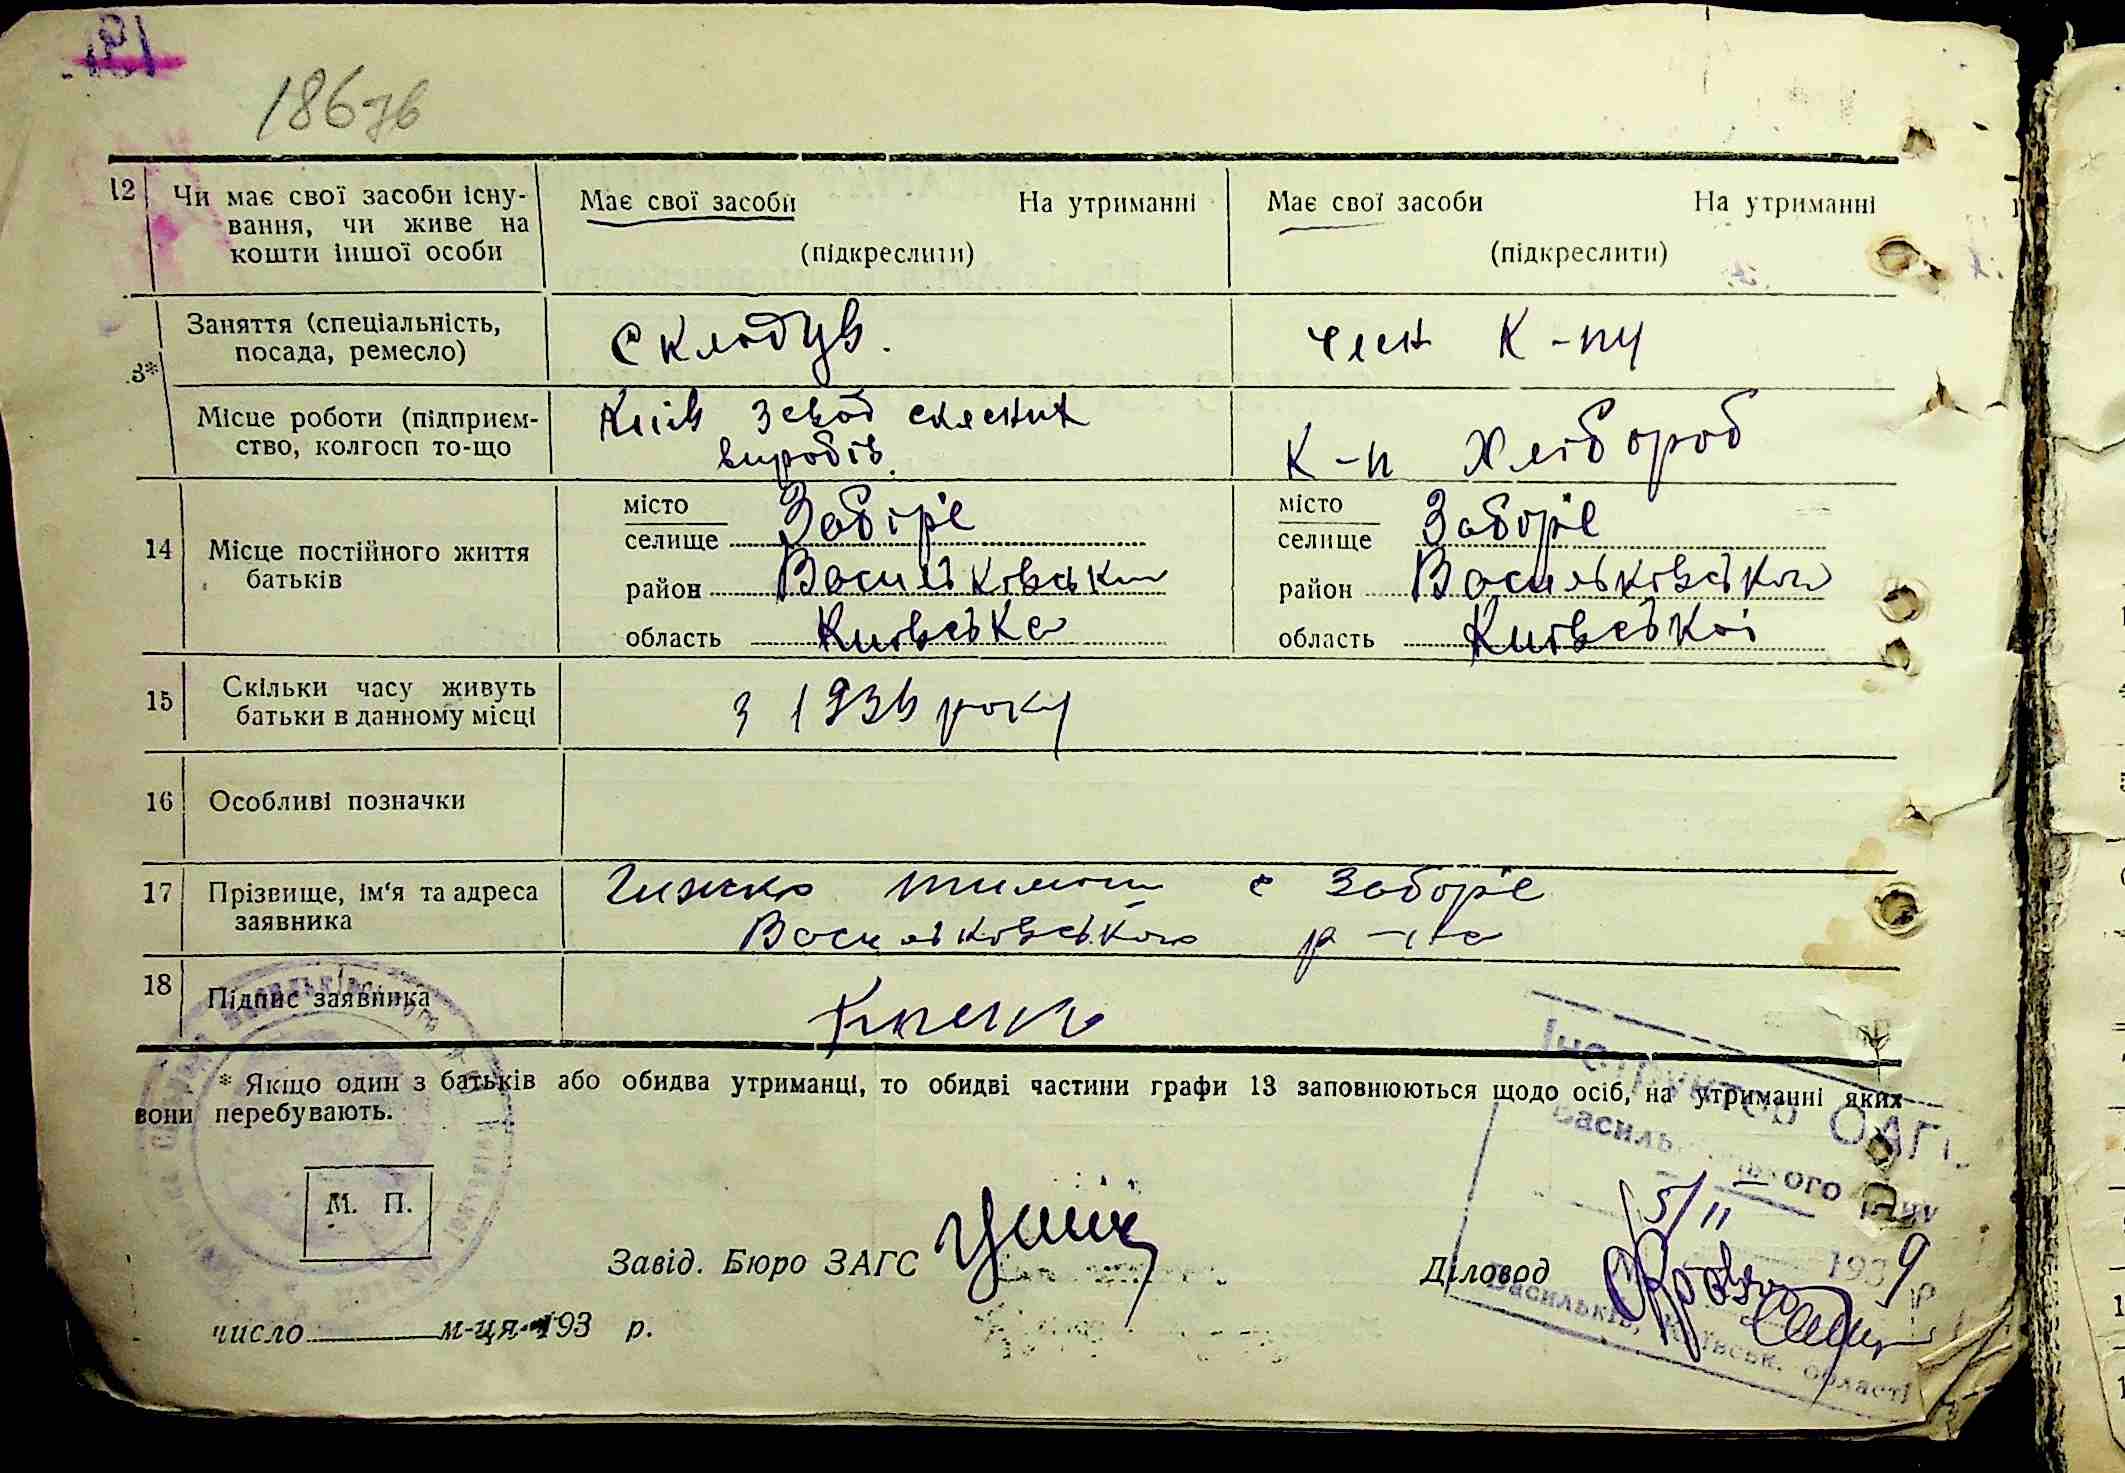 186зв
12 Чи має свої засоби існу-
вання, чи живе на
кошти іншої особи
Має свої засоби На утриманні
(підкреслити)
Має свої засоби На утриманні
(підкреслити)
3*
Заняття (спеціальність,
посада, ремесло)
Склодув.
член К-пу
Місце роботи (підприєм-
ство, колгосп то-що
Київ завод скляних
виробів.
К-п Хлібороб
14 Місце постійного життя
батьків
місто
селище Забір'є
район Васильковськ
область Київська
місто
селище Забор'є
район Васильковського
область Київської
15 Скільки часу живуть
батьки в данному місці
з 1936 року
16 Особливі позначки
17 Прізвище, ім'я та адреса
заявника
с Забор'є
Васильковського р-на
18 Підпис заявника
* Якщо один з батьків або обидва утриманці, то обидві частини графи 13 заповнюються щодо осіб, на утриманні яких
вони перебувають.
М. П.
Завід. Бюро ЗАГС
Діловод
число м-ця 193 р.
Інструктор ОАГС
15/II
1939 р.
Васильків, Київськ. області